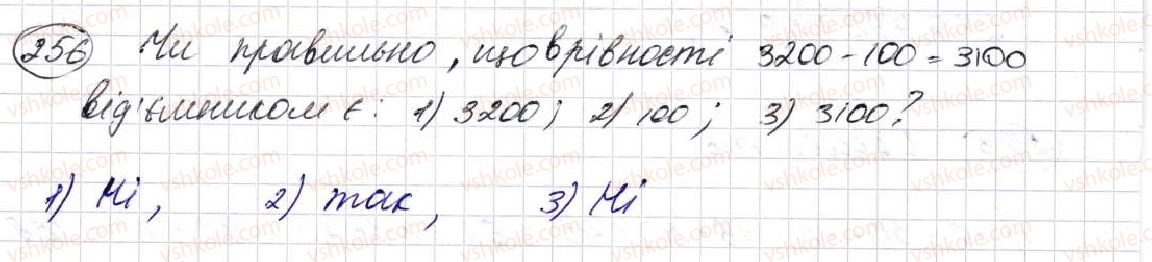 256 Чи правильно, що в рівності 3200 - 100 = 3100
від'ємником є: 1) 3200; 2) 100; 3) 3100?
1) Ні, 2) так, 3) Ні